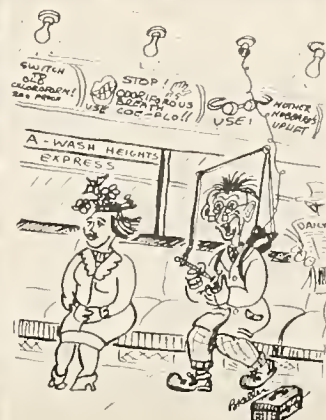 SWITCH
TO
OLD
CHLOROFORM!
200 PROOF
STOP!
ODORIFEROUS
BREATH
USE COE-PLO!!
USE!
MOTHER
HUBBARDS
UPLIFT
A-WASH HEIGHTS
EXPRESS
DAILY